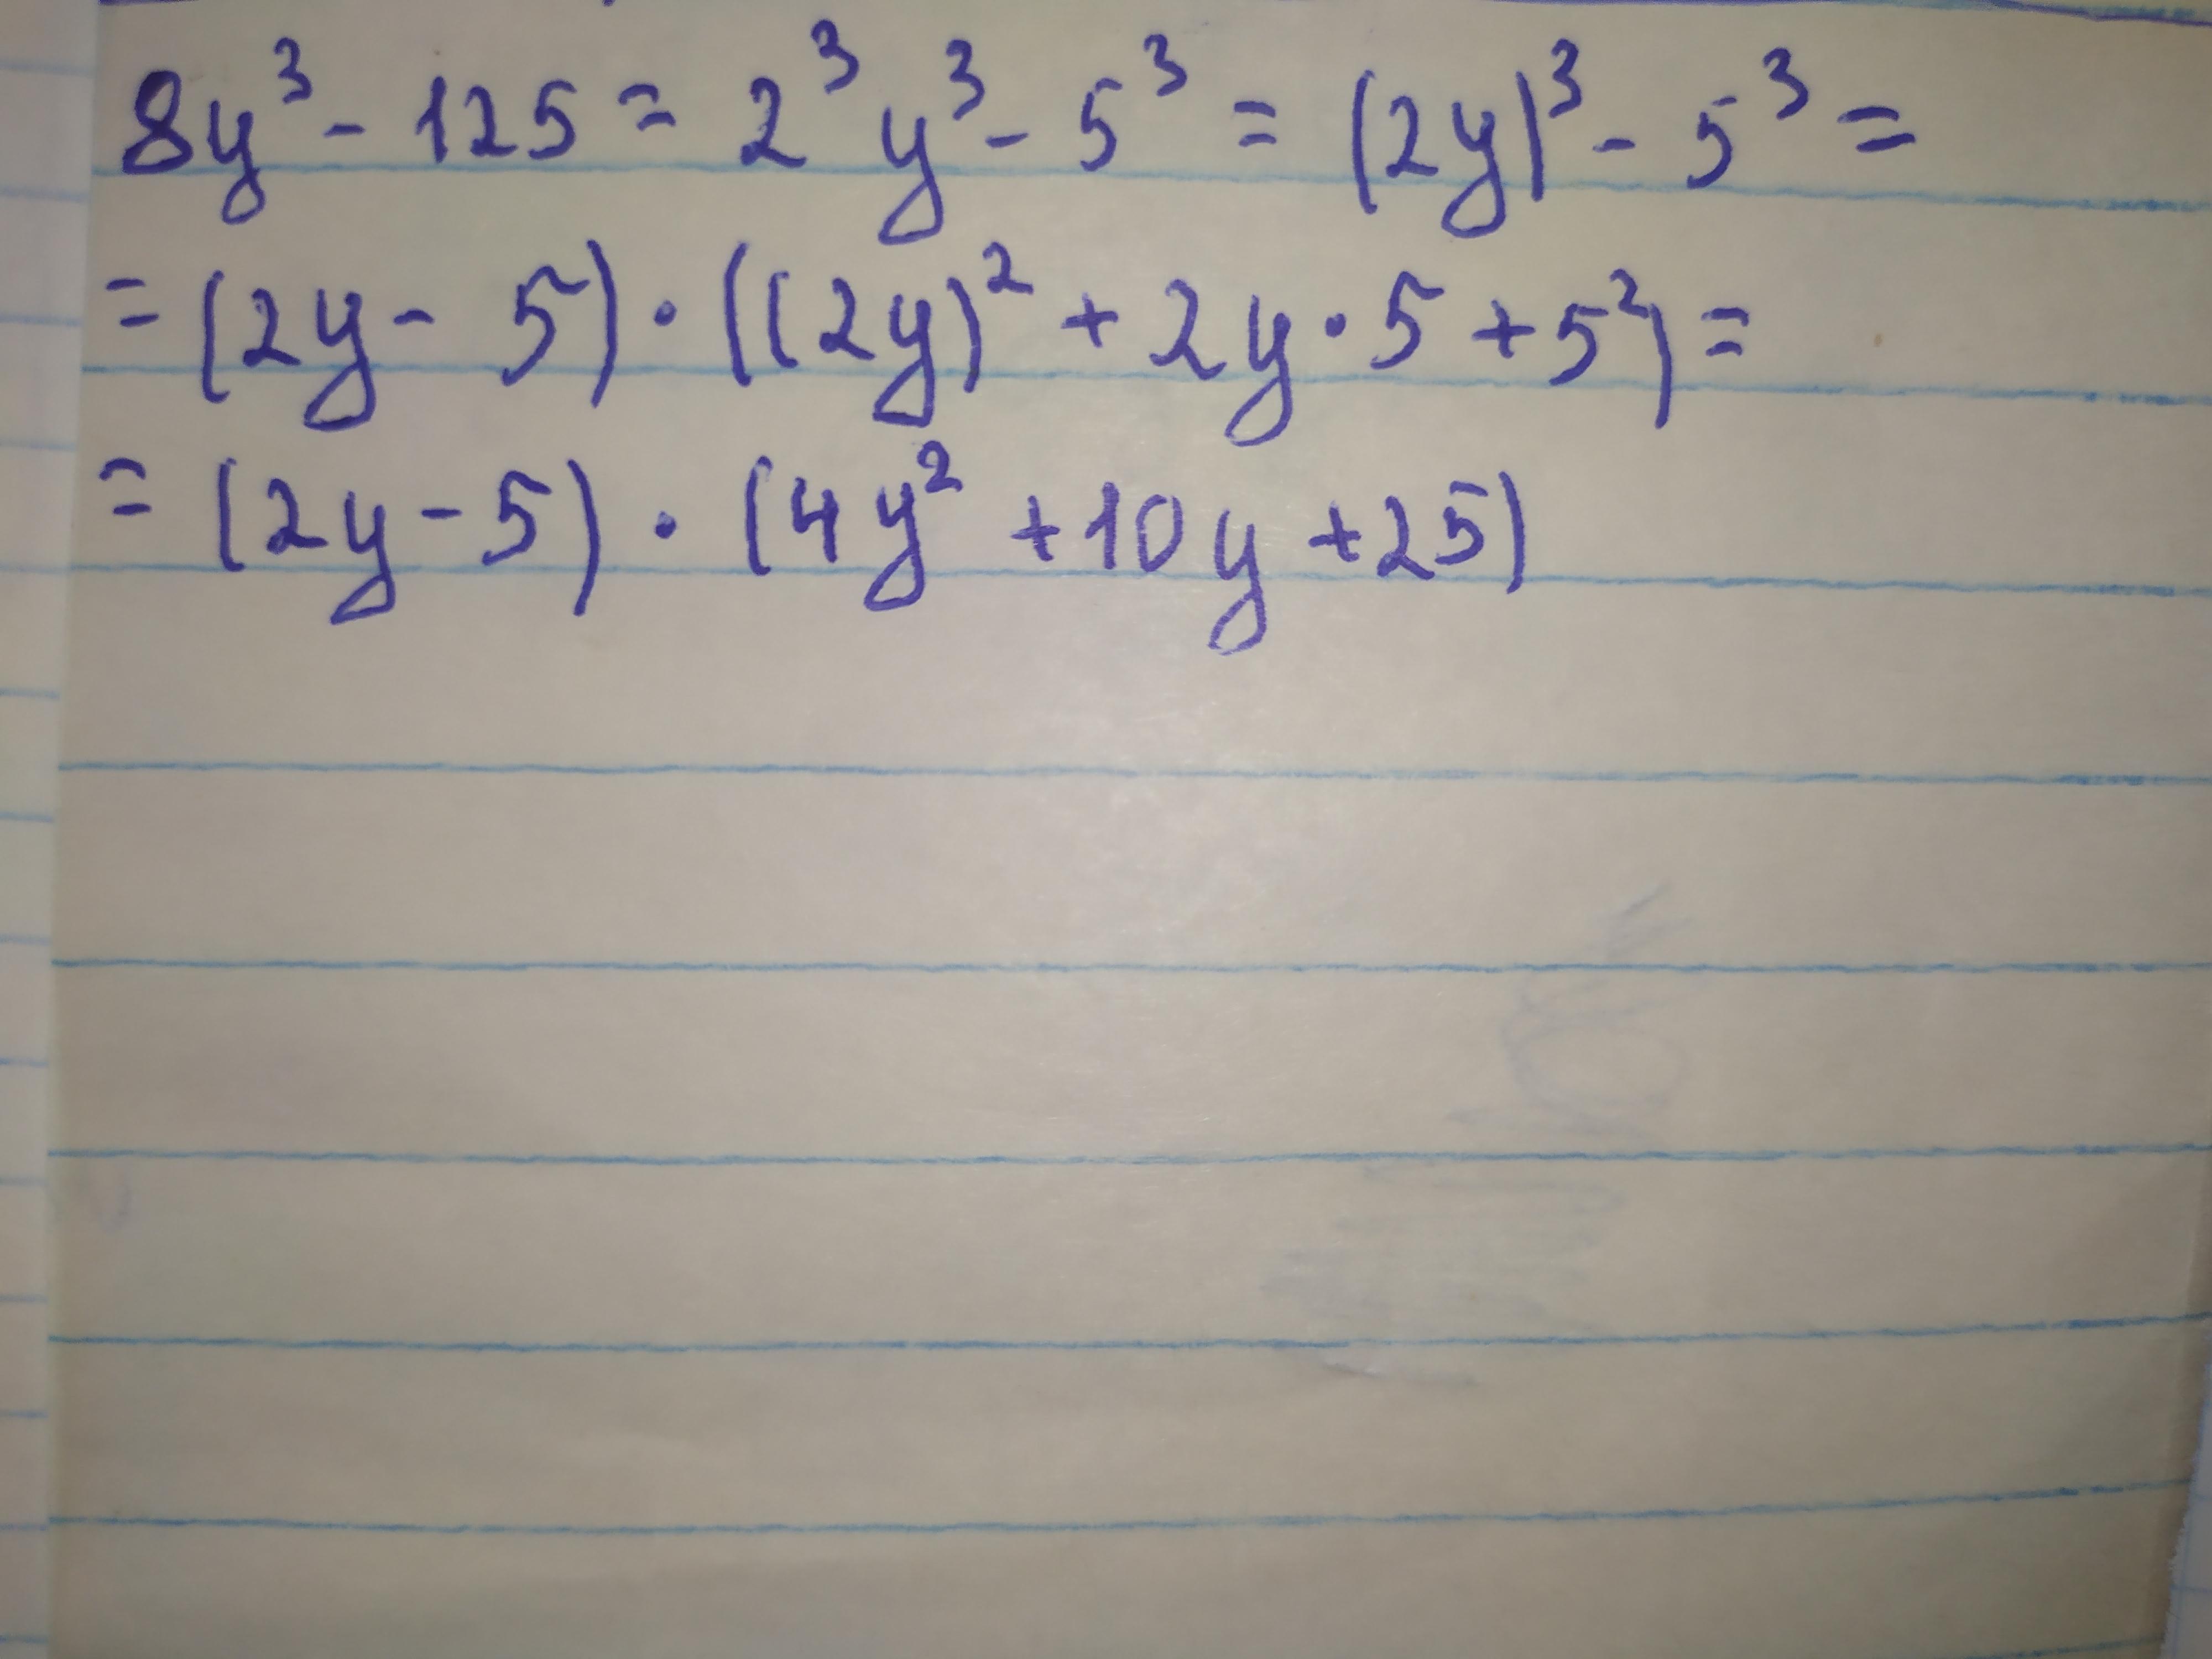 8y³ - 125 = 2³y³ - 5³ = (2y)³ - 5³ =
= (2y - 5) · ((2y)² + 2y · 5 + 5²) =
= (2y - 5) · (4y² + 10y + 25)